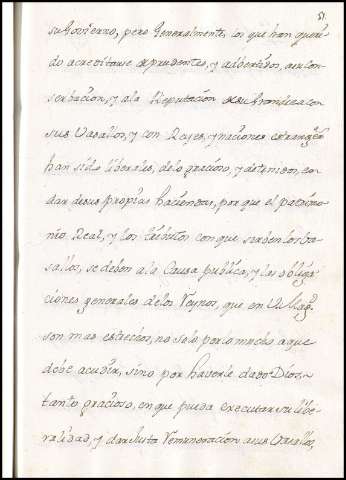 51
su Govierno, pero Generalmente, los que han queri-
do acreditarse de prudentes, y advertidos, en con
serbacion, y ala Reputacion de su
sus Vasallos, y con Reyes, y naciones estrangeras
han sido liberales, delo gracioso, y detenidos, en
dar desus propias haciendas, por que el patrimo-
nio Real, y los tributos con que sirben los Va-
sallos, se deben ala Causa publica, y las obliga-
ciones generales delos Reynos, que en V. Mag.
son mas estrechos, no solo por lo mucho aque
debe acudir, sino por haverle dado Dios,
tanto gracioso, en que pueda executar su libe-
ralidad, y dar Justa Remuneracion a sus Vasallos,